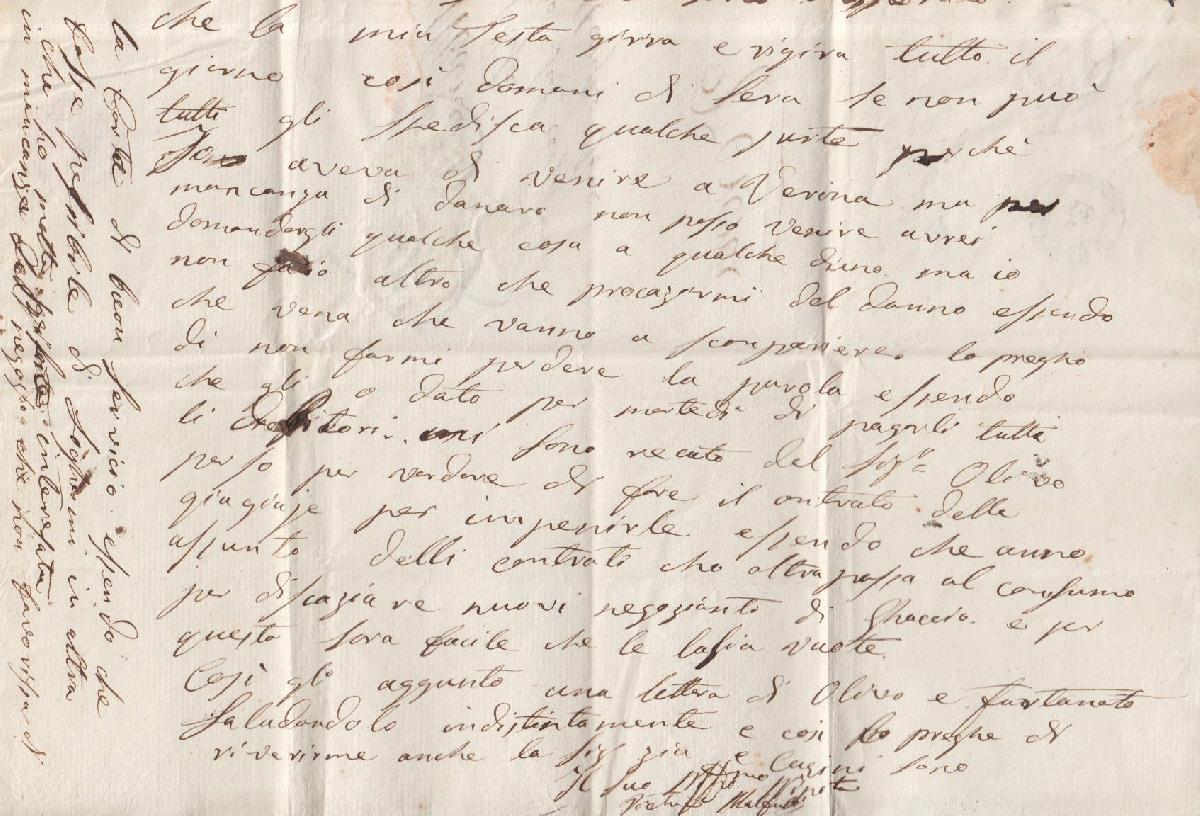 che la mia testa girra e rigira tutto il
giorno così domani di sera se non può
tutti gli spedisca qualche parte perchè
aveva di venire a Verona ma per
mancanza di danaro non posso venire avrei
domandargli qualche cosa a qualche duno ma io
non facio altro che procazarmi del danno essendo
che vena che vanno a scomparire. lo pregho
di non farmi perdere la parola essendo
che gli o dato per martedi di pagarli tutti
li Creditori. mi sono recato del Sigr Olivo
perso per vardare di fare il contrato delle
giagiaje per impenirle essendo che anno
assunto delli contrati che oltrapassa al consumo
per disgaziare nuovi negozianti di Ghaccio e per
questo sara facile che le lassia vuote
Così gli aggunto una lettera di Olivo e fortunato
Saludandolo indistintamente e così lo preghe di
riverirme anche la Sig zia e Cugini sono
Il suo nipote
la Carta di buon servicio essendo che
fosse possibile di in altra
che sio molto interesata
in mancanza dell negozio che non favorisca di